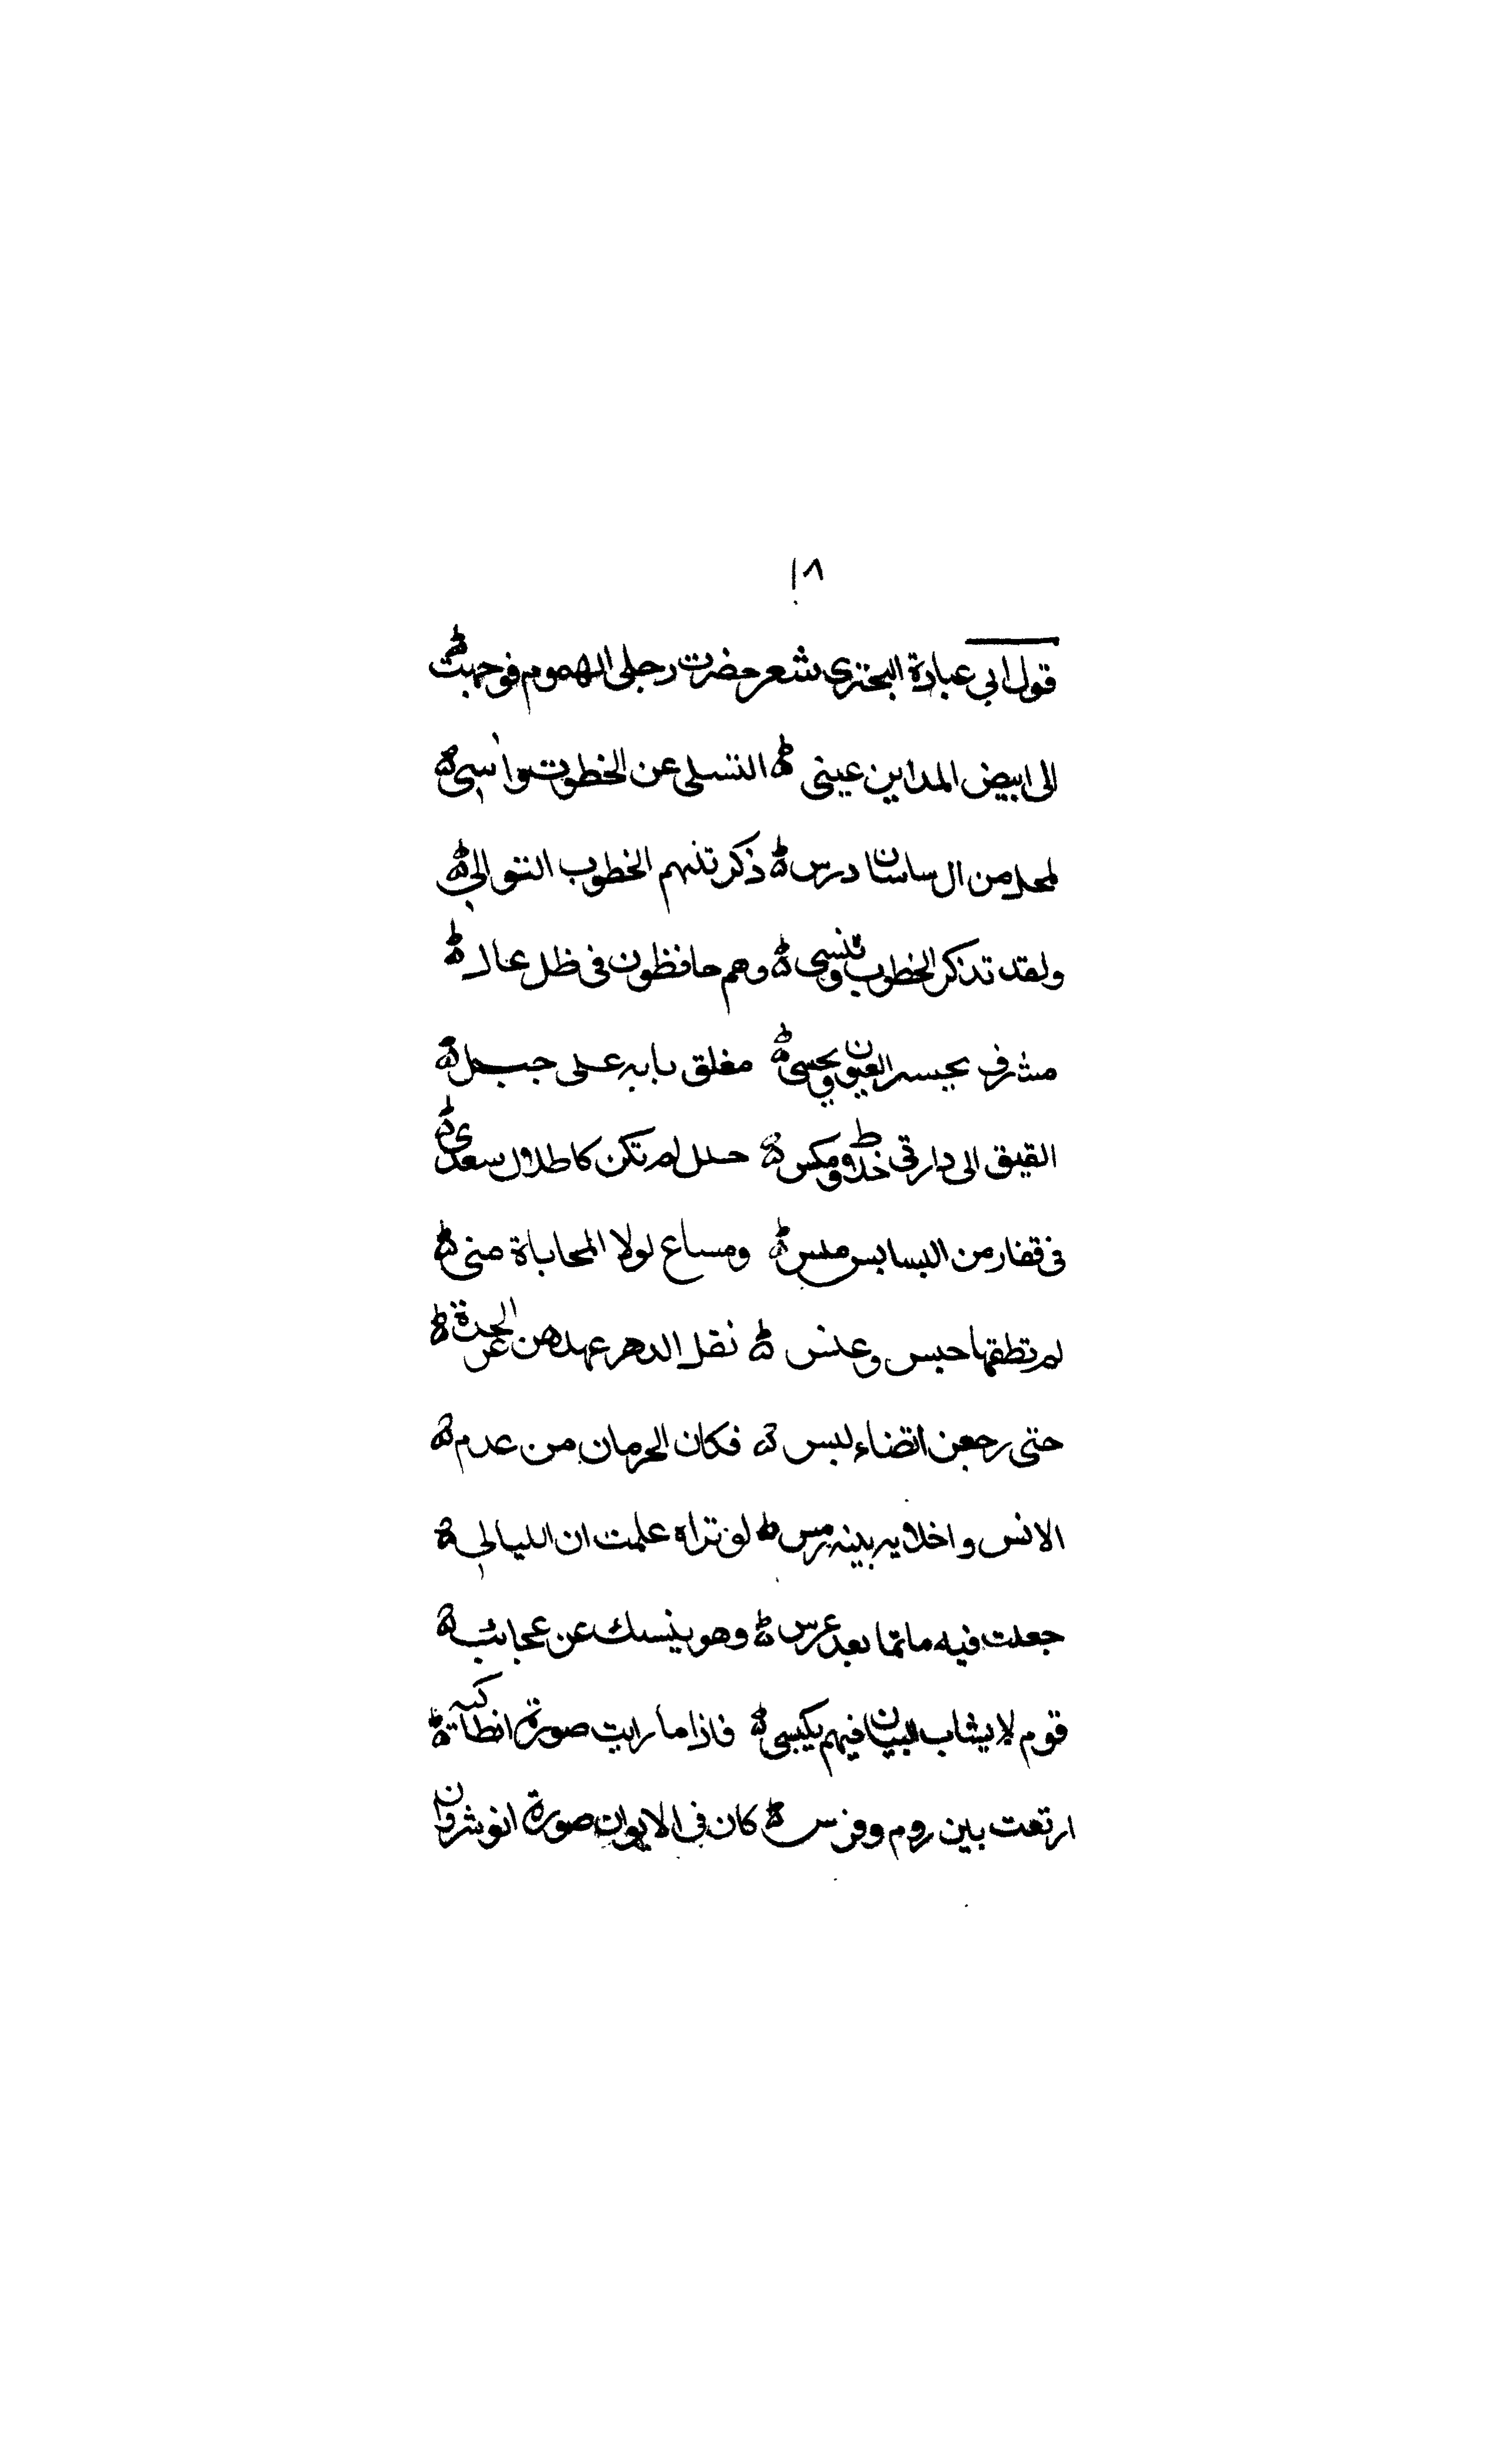 ١٨
قول ابي عبادة البحتري شعر حضرت رحلي الهموم فوجهت
الى ابيض المداين عيني ۞ اتسلى عن الخطوب واسى ۞
لمحل من ال ساسان درس ۞ ذكرتنهم الخطوب التوالي ۞
ولقد تذكر الخطوب وتنسى ۞ وهم حافظون فى ظل عال ۞
مشرف يحسر العيون ويحسى ۞ مغلق بابه على جبل ۞
القبق الى دارتى خلاط ومكس ۞ حلل لم تكن كاطلال سعدى ۞
فى قفار من البسابس ملس ۞ ومساع لولا المحاباة منى ۞
لم تطقها حبس وعنس ۞ نقل الدهر عهدهن عن الجدة ۞
حتى رجعن انضاء لبس ۞ فكان الجرمان من عدم ۞
الانس واخلايه بينه رمس ۞ لو تراه علمت ان الليالي ۞
جعلت فيه ماتما بعد عرس ۞ وهو ينسك عن عجائب ۞
قوم لا يشاب البيان فيهم يكبسى ۞ فاذا ما رايت صورة انطاكية ۞
ارتعت بين روم وفرس ۞ كان فى الايوان صورة انوشروان